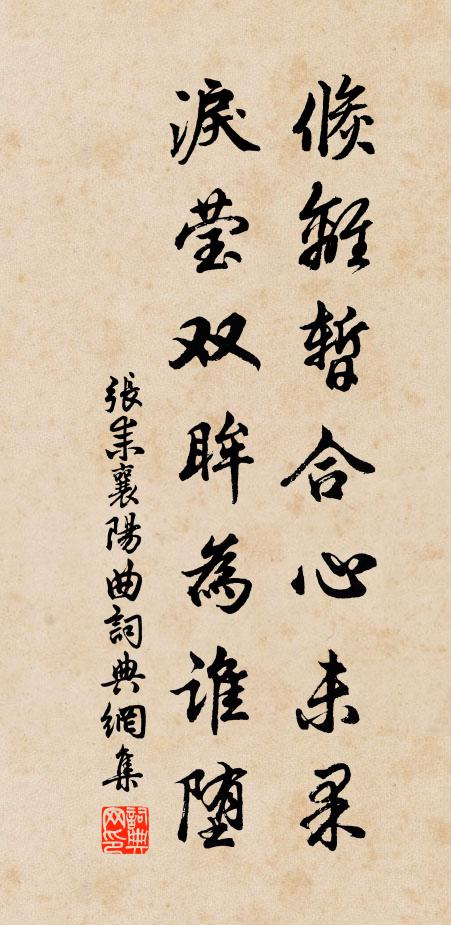 倏離暫合心未果
淚莹双眸為谁堕
張耒襄陽曲詞典網集
詞典网印